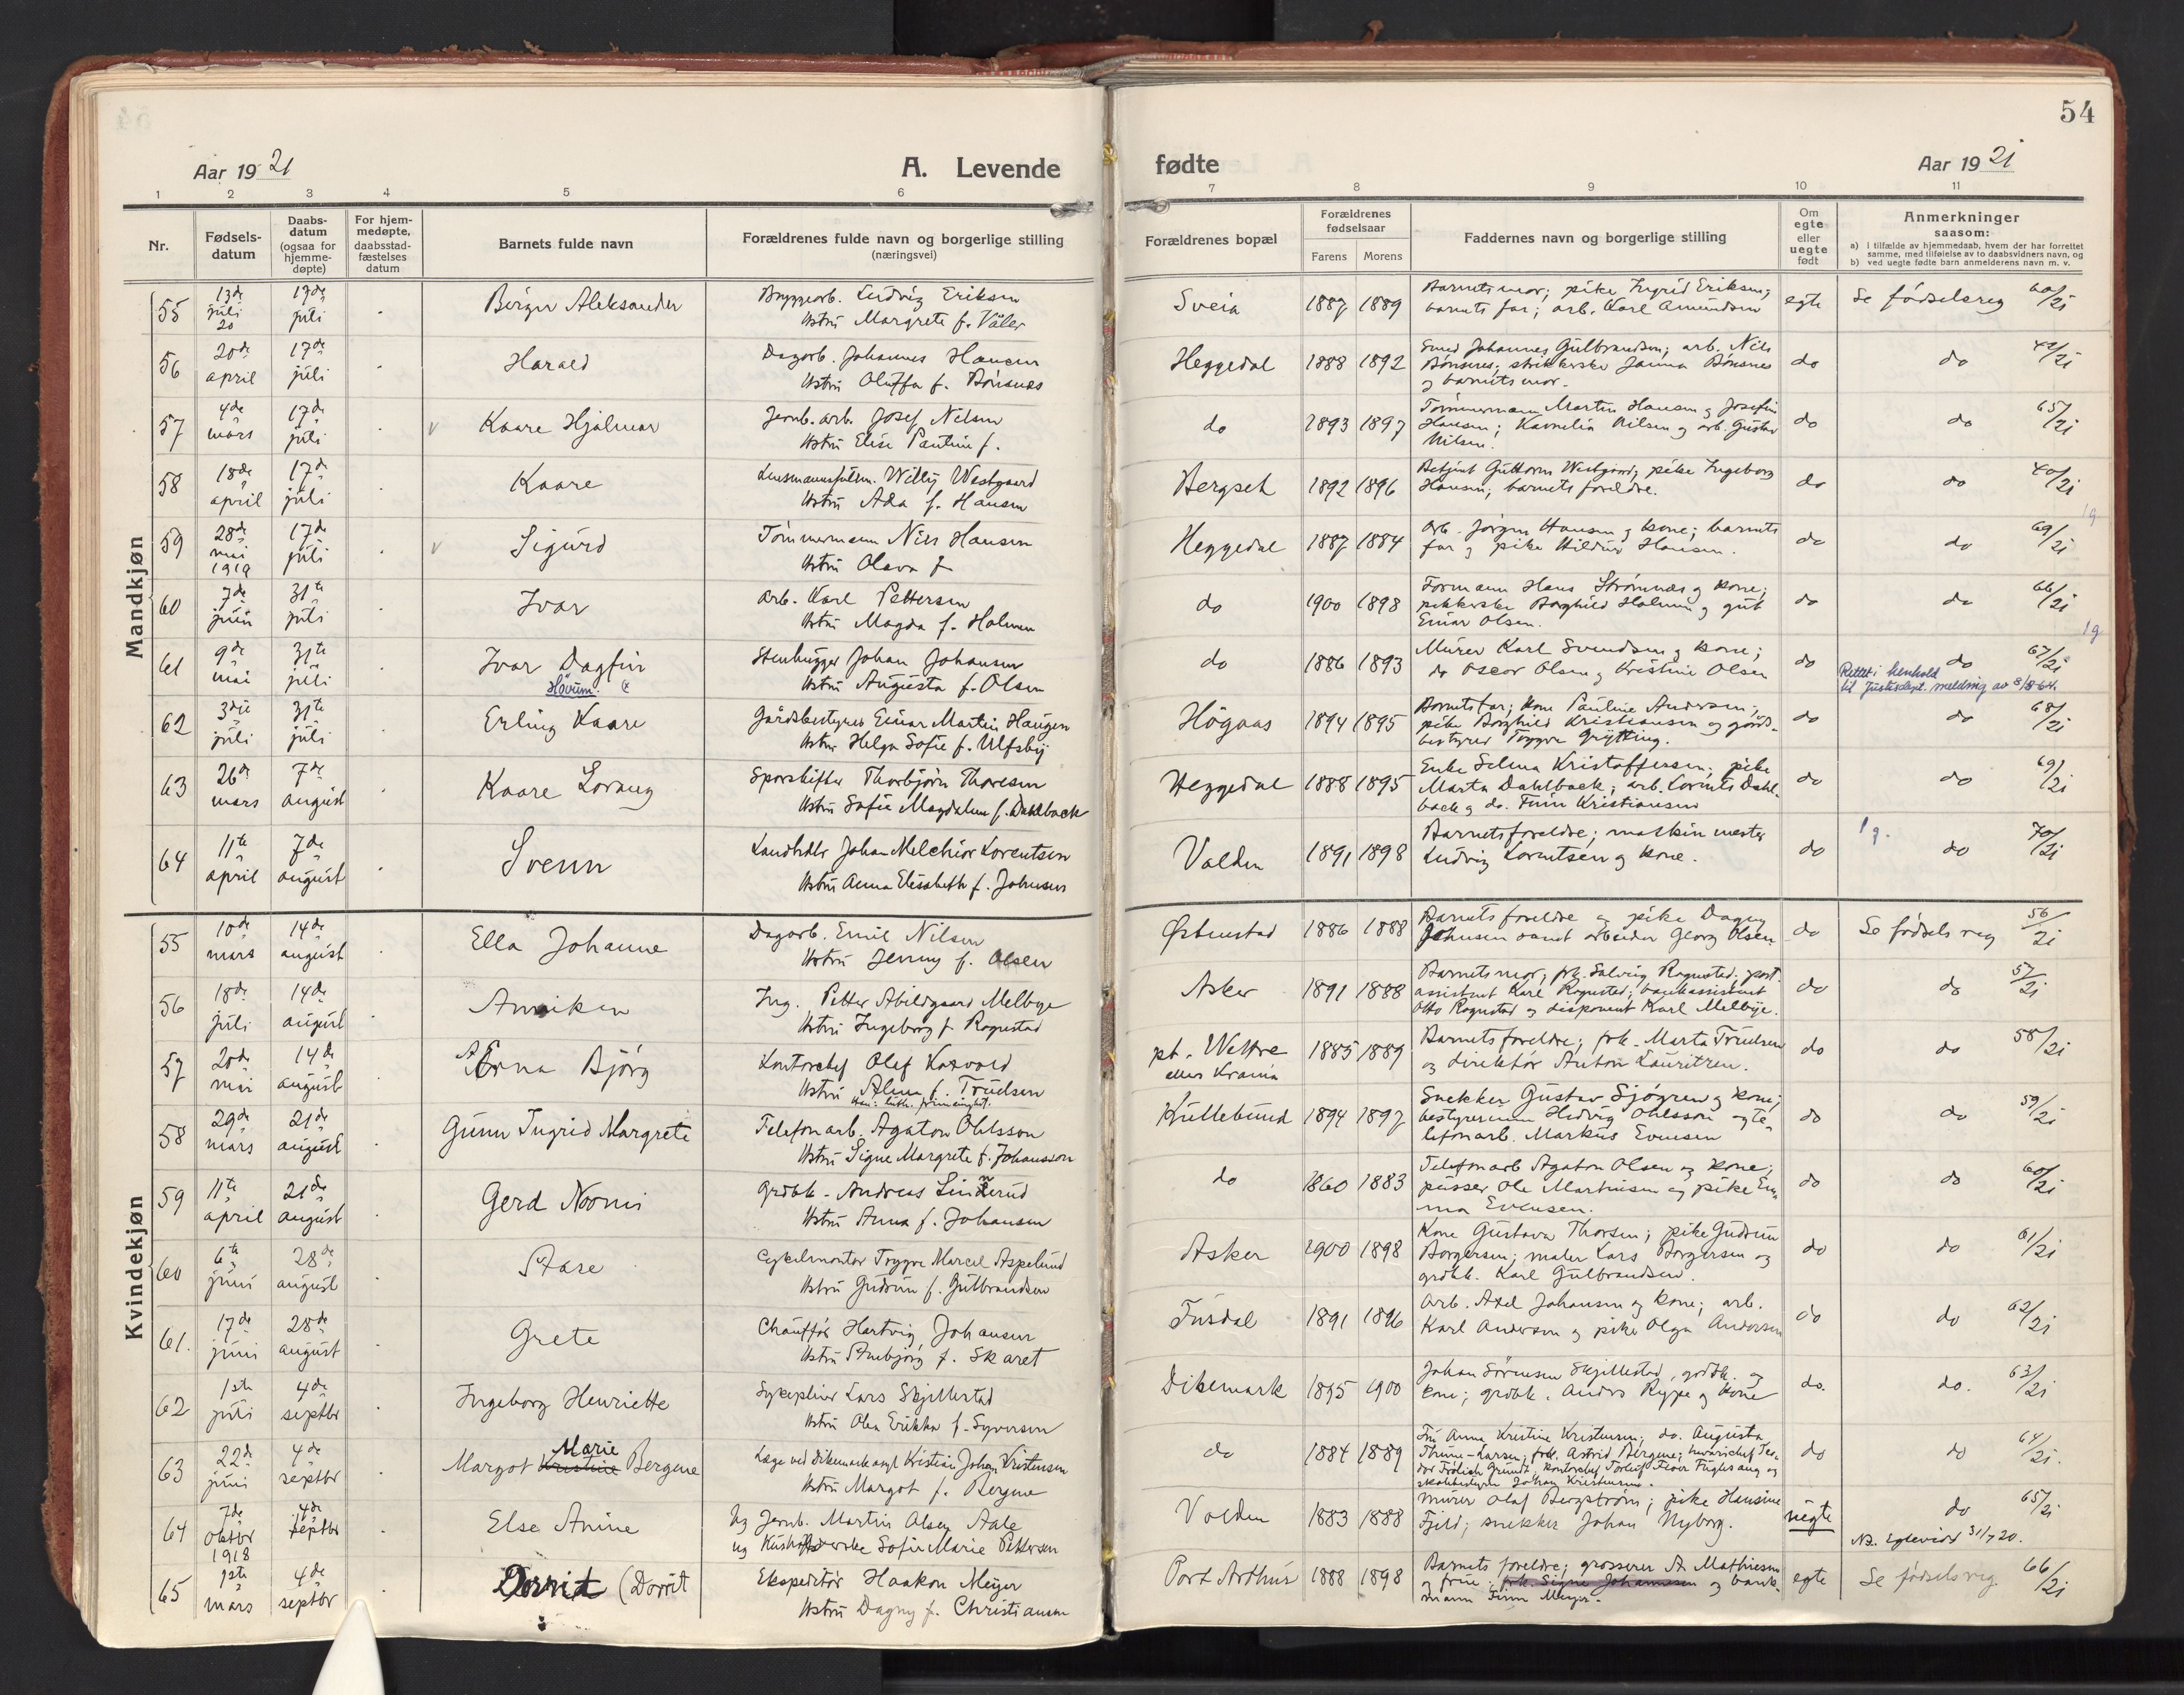 54
Aar 1921
A. Levende
fødte
Aar 1921
1 2 3 4 5 6 7 8 9 10 11
Nr.
Fødsels-
datum
Daabs-
datum
(ogsaa for
hjemme-
døpte)
For hjem-
medøpte,
daabsstad-
fæstelses
datum
Barnets fulde navn
Forældrenes fulde navn og borgerlige stilling
(næringsvei)
Forældrenes bopæl
Forældrenes
fødselsaar
Farens Morens
Faddernes navn og borgerlige stilling
Om
egte
eller
uegte
født
Anmerkninger
saasom:
a) i tilfælde av hjemmedaab, hvem der har forrettet
samme, med tilføielse av to daabsvidners navn, og
b) ved uegte fødte barn anmelderens navn m. v.
Mandkjøn
55 13de juli 20 17de juli Birger Aleksander
Bryggearb. Ludvig Eriksen
Hstru Margrete f. Våler
Sveia 1887 1889
Barnets mor; pike Ingrid Eriksen;
barnets far; arb. Karl Amundsen
egte Se fødselsreg
56 20de april 17de juli Harald
Dagarb. Johannes Hansen
Hstru Oluffa f. Bönsnes
Heggedal 1888 1892
Smed Johannes Gulbrandsen; arb. Nils
Bönsnes; strikkerske Janna Bönsnes
og barnets mor.
do do 42/21
57 4de mars 17de juli Kaare Hjalmar
Jernb. arb. Josef Nilsen
Hstru Elise Pauline f.
do 1893 1897
Tömmermann Martin Hansen og Josefine
Hansen; Kornelia Nilsen og arb. Gustav
Nilsen.
do do 65/21
58 18de april 17de juli Kaare
Lensmannsfulm. Willy Westgaard
Hstru Ada f. Hansen
Bergseh 1892 1896
Betjent Guttorm Westgård; pike Ingeborg
Hansen; barnets foreldre.
do do 40/21
59 28de mai 1919 17de juli Sigurd
Tömmermann Nils Hansen
Hstru Olava f
Heggedal 1887 1884
Arb. Jørgen Hansen og kone; barnets
far og pike Hildur Hansen.
do do 69/21
60 7de juni 31te juli Ivar
Arb. Karl Pettersen
Hstru Magda f. Holmen
do 1900 1898
Formann Hans Strömnæs og kone;
pikkerske Borghild Holmen og gut
Einar Olsen.
do do 66/21
61 9de mai 31te juli Ivar Dagfin
Hovum.
Stenhugger Johan Johansen
Hstru Augusta f. Olsen
do 1886 1893
Murer Karl Svendsen og kone;
do Oscar Olsen og Kristine Olsen
do do 67/21
Rettet i henhold
til Justisdept. melding av 8/8-64.
62 3die juli 31te juli Erling Kaare
Gårdsbestyrer Einar Martin Haugen
Hstru Helga Sofie f. Ulfsby
Högaas 1894 1895
Barnets far; kone Pauline Andersen;
pike Borghild Kristiansen og gårds-
bestyrer Trygve Grytting.
do do 68/21
63 26de mars 7de august Kaare Lorang
Sporskifter Thorbjørn Thoresen
Hstru Sofie Magdalene f. Dahlback
Heggedal 1888 1895
Enke Selma Kristoffersen; pike
Marta Dahlback; arb. Lorents Dahl-
back og do. Finn Kristiansen
do do 69/21
64 11te april 7de august Svenn
Landhdlr Johan Melchior Lorentsen
Hstru Anna Elisabeth f. Johnsen
Valden 1891 1898
Barnets foreldre; maskinmester
Ludvig Lorentsen og kone.
do do 70/21
Kvindekjøn
55 10de mars 14de august Ella Johanne
Dagarb. Emil Nilsen
Hstru Jenny f. Olsen
Østenstad 1886 1888
Barnets foreldre og pike Dagny
Johnsen samt arbeider Georg Olsen
do Se fødselsreg 56/21
56 18de juli 14de august Anniken
Ing. Petter Abildgaard Melbye
Hstru Ingeborg f. Rognstad
Asker 1891 1888
Barnets mor; frk. Solveig Rognstad; post-
assistent Karl Rognstad; bankassistent
Otto Rognstad og disponent Karl Melbye.
do do 57/21
57 20de mai 14de august Erna Björg
Kontorchef Olaf
Hstru f. Trudsen
pt. Wettre
eller Krania 1885 1889
Barnets foreldre; frk. Marta Trudsen
og direktör Anton Lauritzen.
do do 58/21
58 29de mars 21de august Gunn Ingrid Margrete
Telefonarb. Agaton Ohlsson
Hstru Signe Margrete f. Johansson
Kullebund 1894 1897
Snekker Gustav Sjögren og kone;
bestyrerinne Hedvig Ohlsson og te-
lefonarb. Markus Evensen
do do 59/21
59 11te april 21de august Gerd Noomi
Grdbk. Andreas Linnerud
Hstru Anna f. Johansen
do 1860 1883
Telefonarb Agaton Olsen og kone;
pusser Ole Martinsen og pike Em-
ma Evensen.
do do 60/21
60 6te juni 28de august Aase
Cykelmontør Trygve Marcel Aspelund
Hstru Gudrun f. Gulbrandsen
Asker 1900 1898
Kone Gustava Thorsen; pike Gudrun
Borgersen; maler Lars Borgersen og
grdbk. Karl Gulbrandsen.
do do 61/21
61. 17de juni 28de august Grete
Chauffør Hartvig Johansen
Hstru Ambjørg f. Skaret
Fusdal 1891 1896
Arb. Axel Johansen og kone; arb.
Karl Andersen og pike Olga Andersen
do do 62/21
62 1ste juli 4de septbr Ingeborg Henriette
Sykepleier Lars Skjellestad
Hstru Olea Erikka f. Syversen
Dikemark 1895 1900
Johan Sørensen Skjellestad, grdbk. og
kone; grdbk. Anders Rype og kone
do. do. 63/21
63 22de juni 4de septbr Margot Kristine Marie Bergene
Læge ved Dikemark asyl Kristian Johan Kristensen
Hstru Margot f. Bergene
do 1884 1889
Fru Anna Kristine Kristensen; do. Augusta
Thrane-Larsen; frk. Astrid Bergene; hovarichef Teo-
dor Frölich Grundt, kontorchef Torleif Fuglesang og
skolebestyrer Johan Kristensen.
do do 64/21.
64 7de oktbr 1918 4de septbr Else Anine
Ug Jernb. Martin Olsen Aale
ug Sofie Marie Pettersen
Valden 1883 1888
Murer Olaf Bergström; pike Hansine
Fjeld; snekker Johan Nyborg.
uegte do 65/21
Nb. Egtevidd 31/7 20.
65 1ste mars 4de septbr Dorrit (Dorrit
Ekspeditør Haakon Meyer
Hstru Dagny f. Christiansen
Port Arthur 1888 1898
Barnets foreldre; grosserer A. Mathiesen
og frue; frk. Signe Johannesen og bank-
mann Finn Meyer.
egte Se fødselsreg 66/21